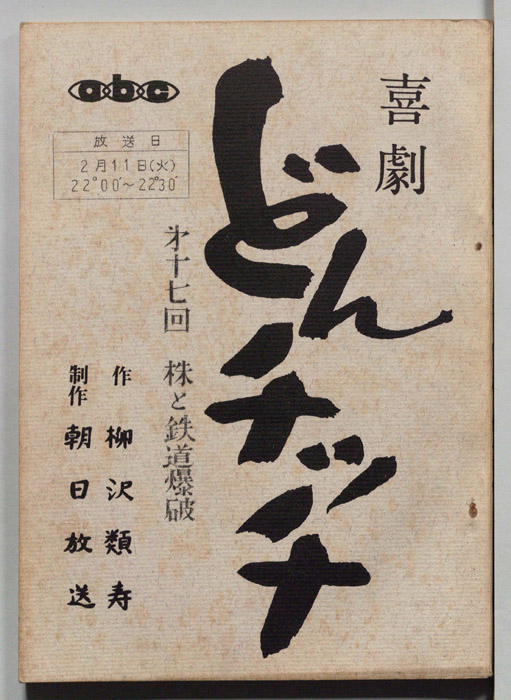 喜劇
どんチッチ
abc
放送日
2月11日(火)
22°00′〜22°30′
才十七回 株と鉄道爆破
作 柳沢類寿
制作 朝日放送